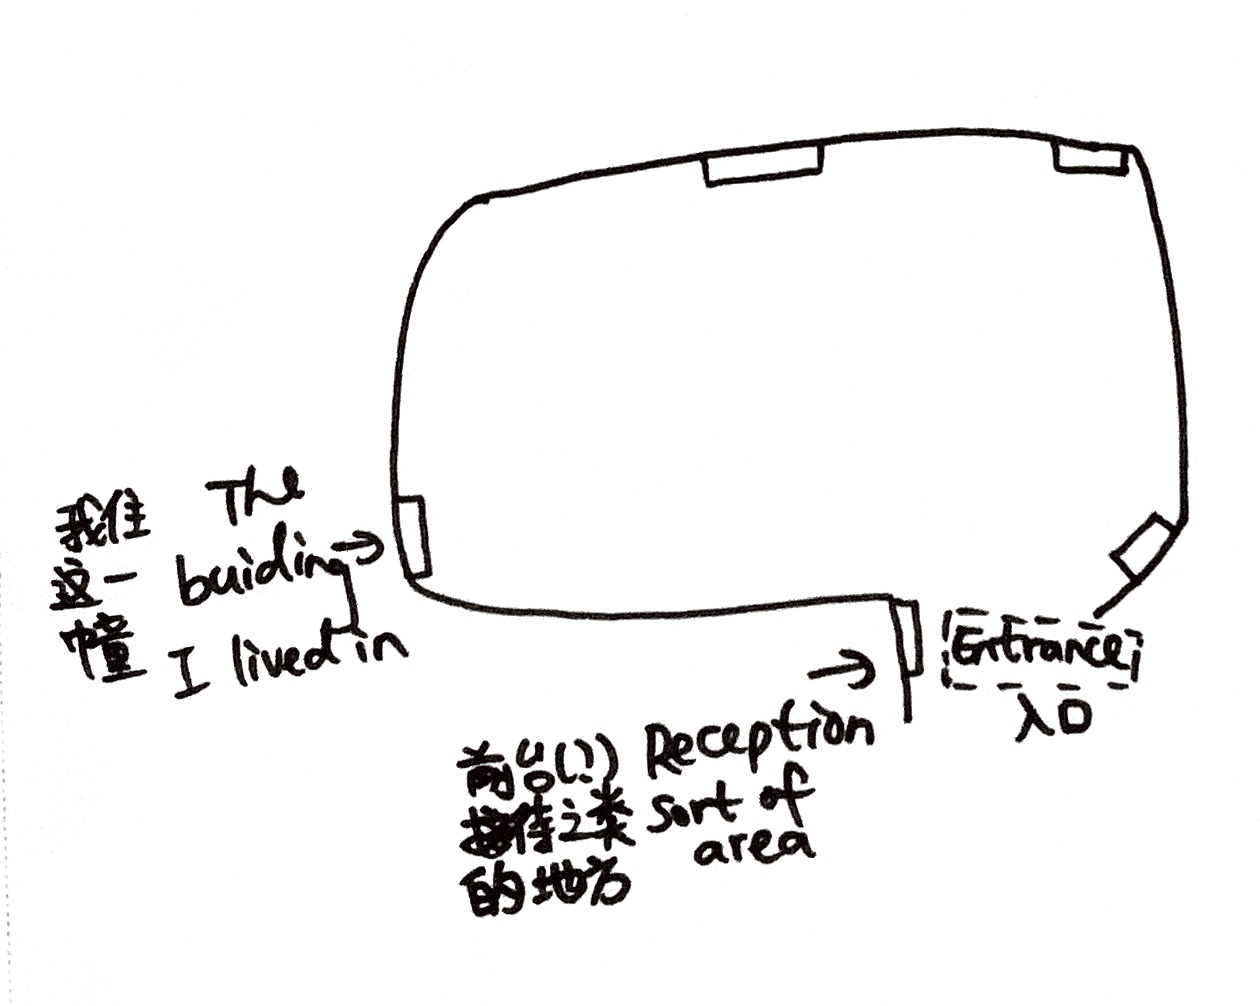 我住
这一
幢
The
buiding
I lived in
Entrance
入口
前台(?)
接待之类
的地方
Reception
sort of
area